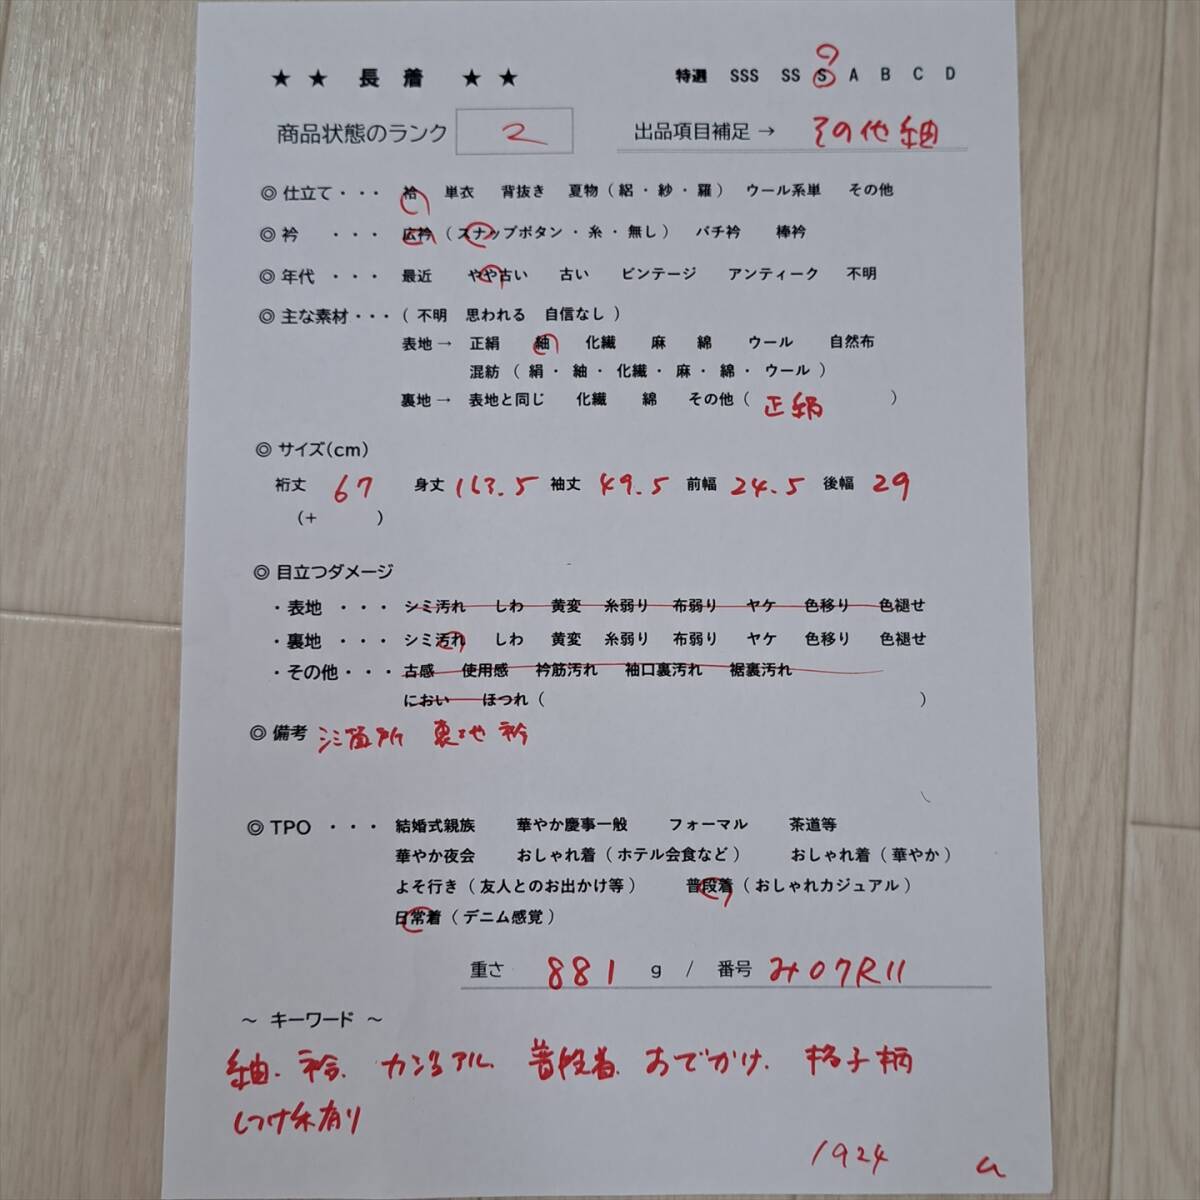 ★ ★ 長 着 ★ ★ 特選 SSS SS S A B C D
商品状態のランク 2 出品項目補足 → その他紬
◎ 仕立て・・・ 袷 単衣 背抜き 夏物（絽・紗・羅） ウール系単 その他
◎ 衿 ・・・ 広衿（スナップボタン・糸・無し） バチ衿 棒衿
◎ 年代 ・・・ 最近 やや古い 古い ビンテージ アンティーク 不明
◎ 主な素材・・・（ 不明 思われる 自信なし ）
表地→ 正絹 紬 化繊 麻 綿 ウール 自然布
混紡（ 絹・紬・化繊・麻・綿・ウール ）
裏地→ 表地と同じ 化繊 綿 その他（ 正絹 ）
◎ サイズ(cm)
裄丈 67 身丈 163.5 袖丈 49.5 前幅 24.5 後幅 29
(+ )
◎ 目立つダメージ
・表地 ・・・ シミ汚れ しわ 黄変 糸弱り 布弱り ヤケ 色移り 色褪せ
・裏地 ・・・ シミ汚れ しわ 黄変 糸弱り 布弱り ヤケ 色移り 色褪せ
・その他・・・ 古感 使用感 衿筋汚れ 袖口裏汚れ 裾裏汚れ
におい ほつれ（ ）
◎ 備考 シミ箇所 裏地 衿
◎ TPO ・・・ 結婚式親族 華やか慶事一般 フォーマル 茶道等
華やか夜会 おしゃれ着（ホテル会食など） おしゃれ着（華やか）
よそ行き（友人とのお出かけ等） 普段着（おしゃれカジュアル）
日常着（デニム感覚）
重さ 881 g / 番号 み07R11
～ キーワード ～
紬. 袷. カジュアル. 普段着. おでかけ. 格子柄
しつけ糸有り
1924